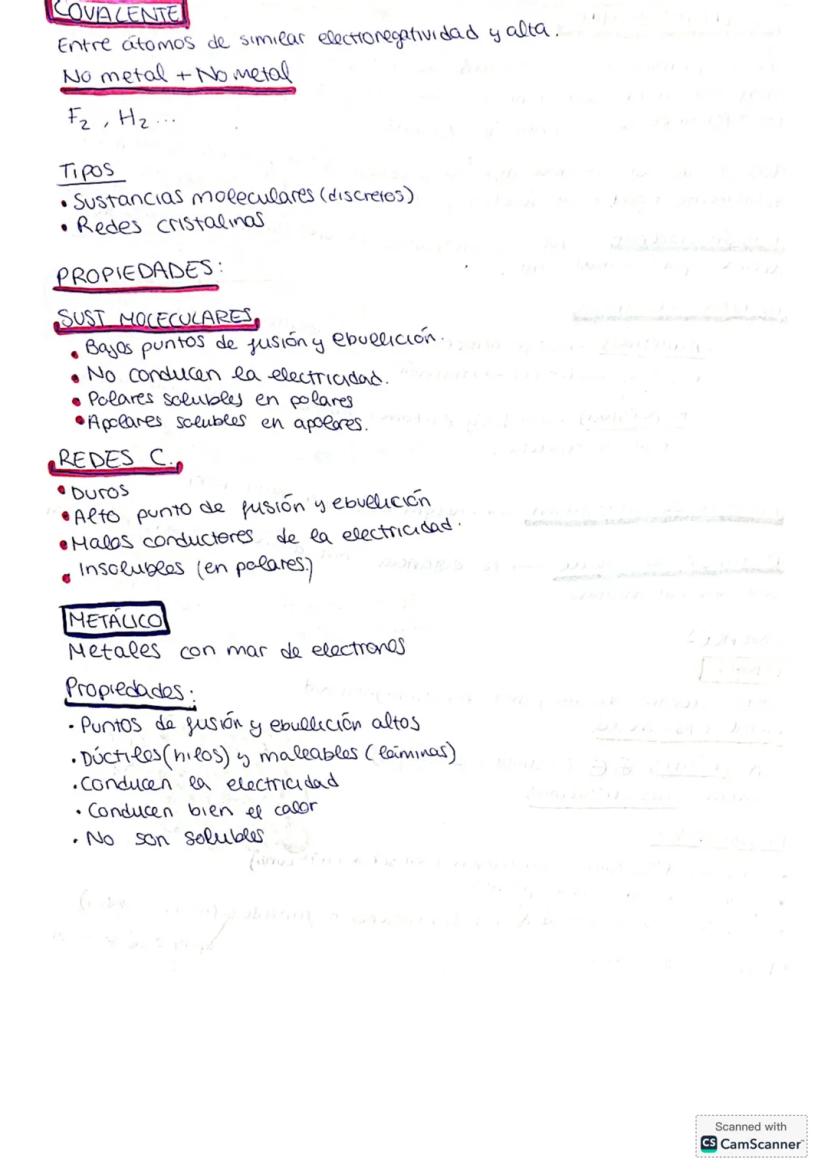 COVALENTE
Entre átomos de similar electronegatividad y alta.
No metal + No metal
F₂, H₂...
Tipos
• Sustancias moleculares (discretos)
• Redes cristalinas
PROPIEDADES:
SUST MOLECULARES
• Bajos puntos de fusión y ebullición.
• No conducen la electricidad.
• Polares solubles en polares
• Apolares solubles en apolares.
REDES C.
• Duros
• Alto punto de fusión y ebullición
• Malos conductores de la electricidad.
• Insolubles (en polares)
METÁLICO
Metales con mar de electrones
Propiedades:
• Puntos de fusión y ebullición altos
• Dúctiles (hilos) y maleables (láminas)
• Conducen la electricidad
• Conducen bien el calor
• No son solubles
Scanned with
CS CamScanner